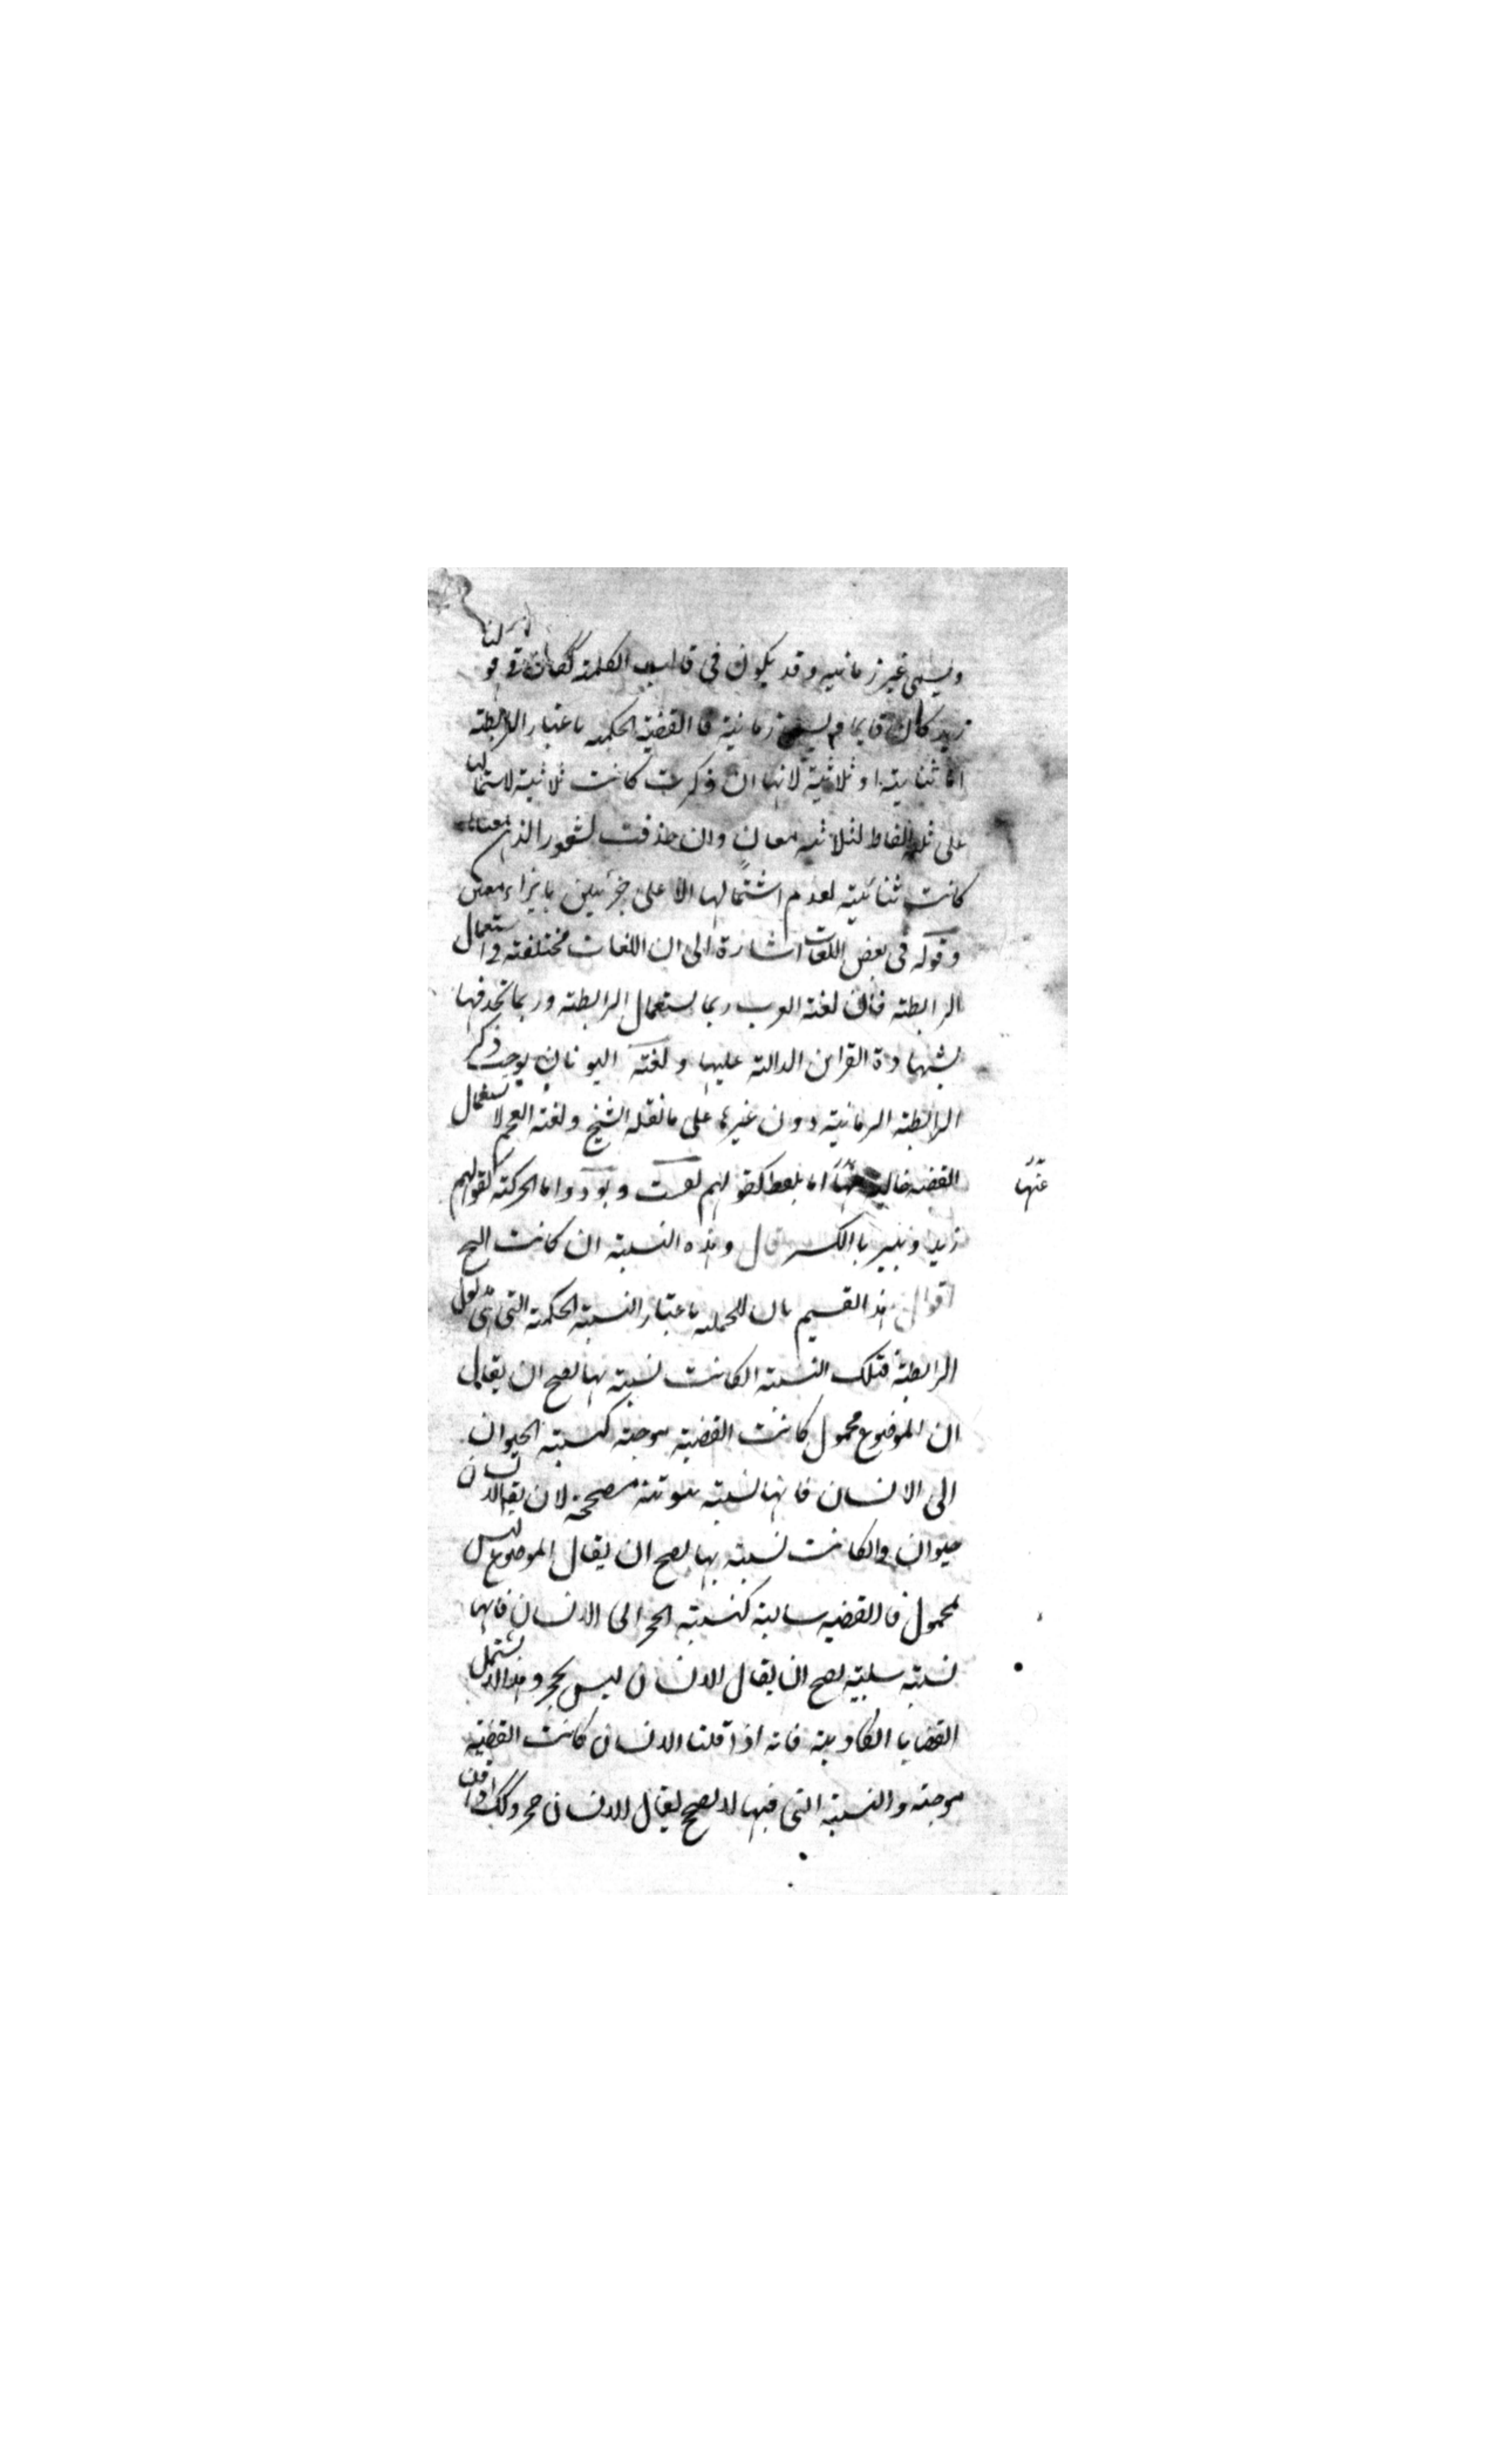 ويسمى غير زمانيه وقد يكون في قالب الكلمة ككان في قولنا
زيد كان قايما ويسمى زمانية فالقضية الحكميه باعتبار الرابطة
اما ثنايية او ثلاثية لانها ان ذكرت كانت ثلاثية لاشتمالها
على ثلثة الفاظ لثلاثة معان وان حذفت لشعور الذهن بمعناها
كانت ثنائية لعدم اشتمالها الا على جزئين بازاء معنيين
وقوله في بعض اللغات اشارة الى ان اللغات مختلفة في استعمال
الرابطة فان لغة العرب ربما يستعمل الرابطة وربما تحذفها
بشهادة القراين الدالة عليها ولغة اليونان يوجب ذكر
الرابطة الزمانية دون غيرها على ما نقله الشيخ ولغة العجم لا تستعمل
القضيه خالية عنها اما بلفظ كقولهم هست وبود واما الحركة كقولهم
عنها
زيد دبير بالكسر قال وهذه النسبة ان كانت الخ
اقول هذا تقسيم ثان للحمليه باعتبار النسبة الحكمية التي هي مدلول
الرابطة فتلك النسبة ان كانت نسبة بها يصح ان يقال
ان الموضوع محمول كانت القضية موجبة كنسبة الحيوان
الى الانسان فانها نسبة ثبوتية مصححة لان يقال الانسان
حيوان وان كانت نسبة بها يصح ان يقال الموضوع ليس
بمحمول فالقضيه سالبة كنسبة الحجر الى الانسان فانها
نسبة سلبية يصح ان يقال الانسان ليس بحجر وهذا لا يشتمل
القضايا الكاذبة فانه اذا قلنا الانسان كانت القضية
موجبة والنسبة التي فيها لا يصح يقال الانسان حجر وكذلك اذا قلنا